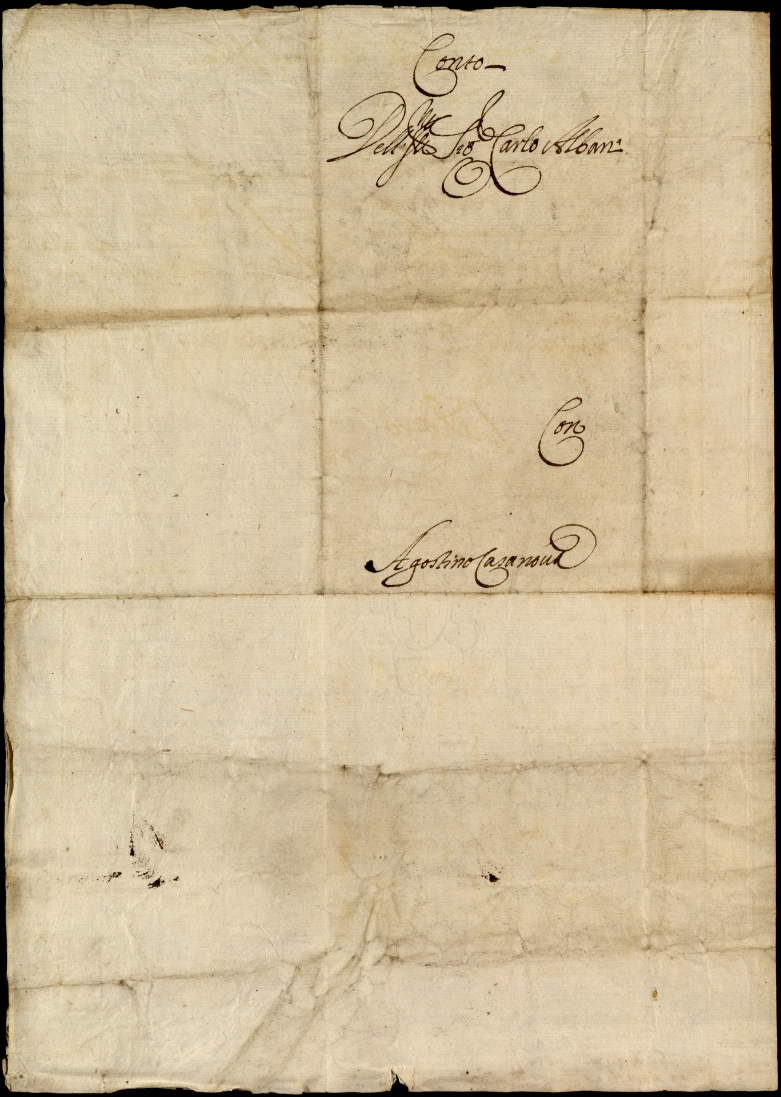 Conto
Dell Ill.mo Sig.r Carlo Alban.i
Con
Agostino Casanova